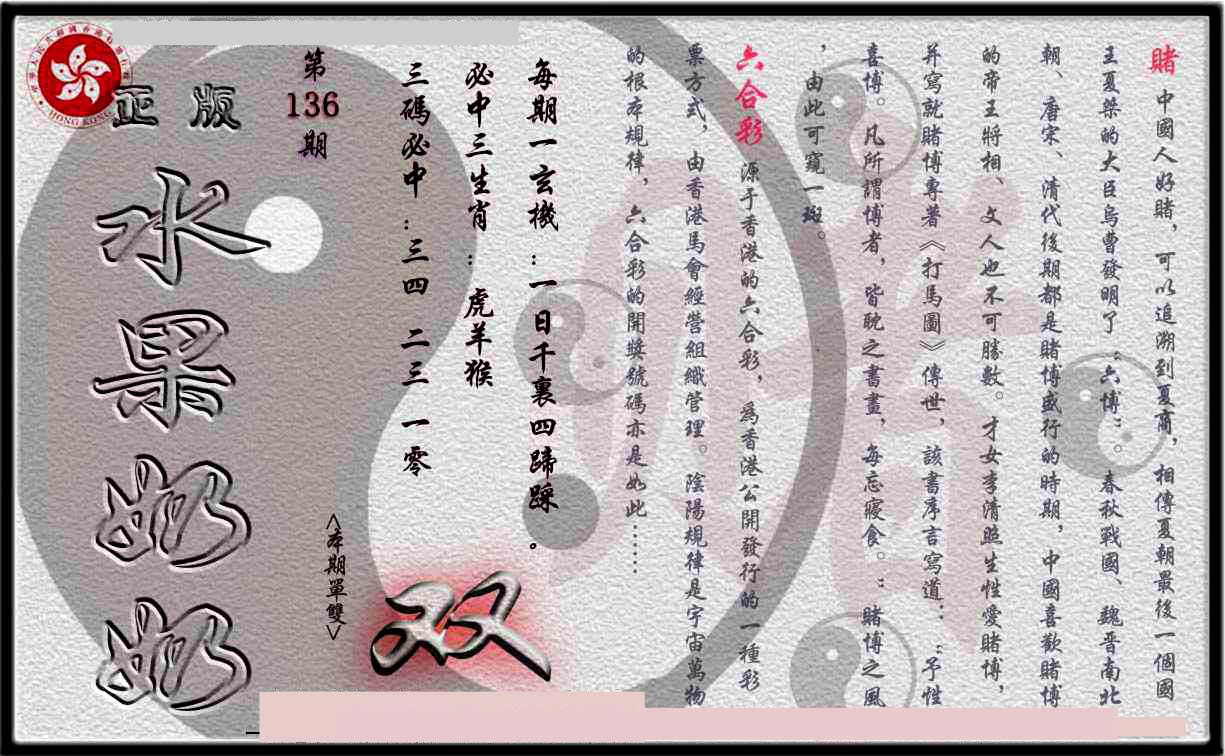 賭 中國人好賭，可以追溯到夏商，相傳夏朝最後一個國
王夏桀的大臣烏曹發明了“六博”。春秋戰國、魏晋南北
朝、唐宋、清代後期都是賭博盛行的時期，中國喜歡賭博
的帝王將相、文人也不可勝數。才女李清照生性愛賭博，
并寫就賭博專著《打馬圖》傳世，該書序言寫道：“予性
喜博。凡所謂博者，皆耽之書畫，每忘寢食。”賭博之風
，由此可窺一斑。
六合彩 源于香港的六合彩，為香港公開發行的一種彩
票方式，由香港馬會經營組織管理。陰陽規律是宇宙萬物
的根本規律，六合彩的開獎號碼亦是如此……
每期一玄機：一日千裏四蹄踩。
必中三生肖：虎羊猴
三碼必中：三四 二三 一零
双
第136期
<本期單雙>
正版
水果奶奶
HONG KONG